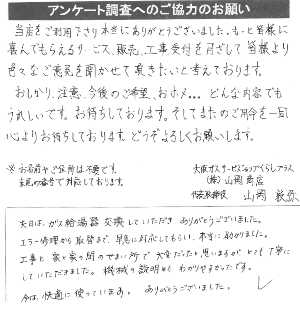 アンケート調査へのご協力のお願い
当店をご利用下さり本当にありがとうございました。もっと皆様に
喜んでもらえるサービス、販売、工事受付を目ざして 皆様より
色々なご意見を聞かせて頂きたいと考えております。
おしかり、注意、今後のご希望、おホメ… どんな内容でも
うれしいです。お待ちしております。そしてまたのご用命を一同
心よりお待ちしております。どうぞよろしくお願いします。
※お名前やご住所は不要です。
大阪ガスサービスショップくらしプラス
(株)山岡商店
代表取締役 山岡
本日は、ガス給湯器交換していただき ありがとうございました。
エラー修理から取替まで、早急に対応してもらい、本当に助かりました。
工事も家と家の間のせまい所で大変だったと思いますが とても丁寧に
していただきました。機械の説明もわかりやすかったです。
今は、快適に使っています。ありがとうございました。